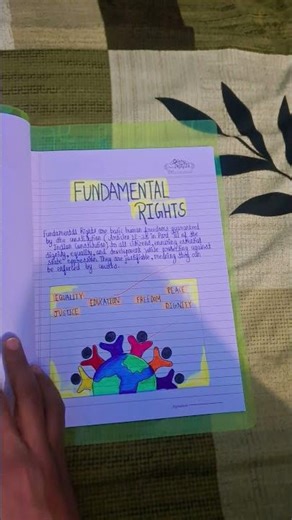 FUNDAMENTAL
RIGHTS
Fundamental Rights are basic human freedoms guaranteed
by the constitution (Articles 12-35 in Part III of the
Indian Constitution) to all citizens, ensuring
dignity, equality, and development while protecting against
state oppression. They are justifiable, meaning they can
be enforced by courts.
EQUALITY EDUCATION FREEDOM PEACE
JUSTICE DIGNITY